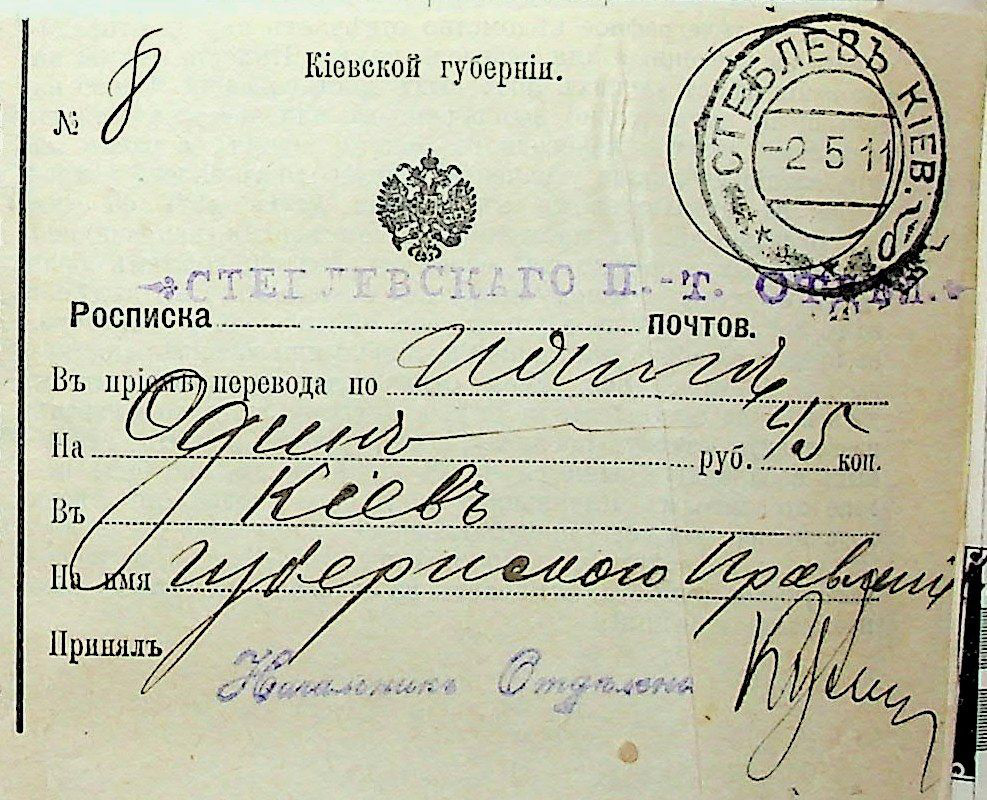 Кіевской губерніи.
№ 8
СТЕБЛЕВЪ КІЕВ.
-2 5 11
СТЕБЛЕВСКАГО П.-Т. ОТДѢЛ.
Росписка почтов.
Въ пріемѣ перевода по почтѣ
На Одинъ руб. 45 коп.
Въ Кіевъ
На имя Губернского Правленія
Принялъ
Начальникъ Отдѣленія